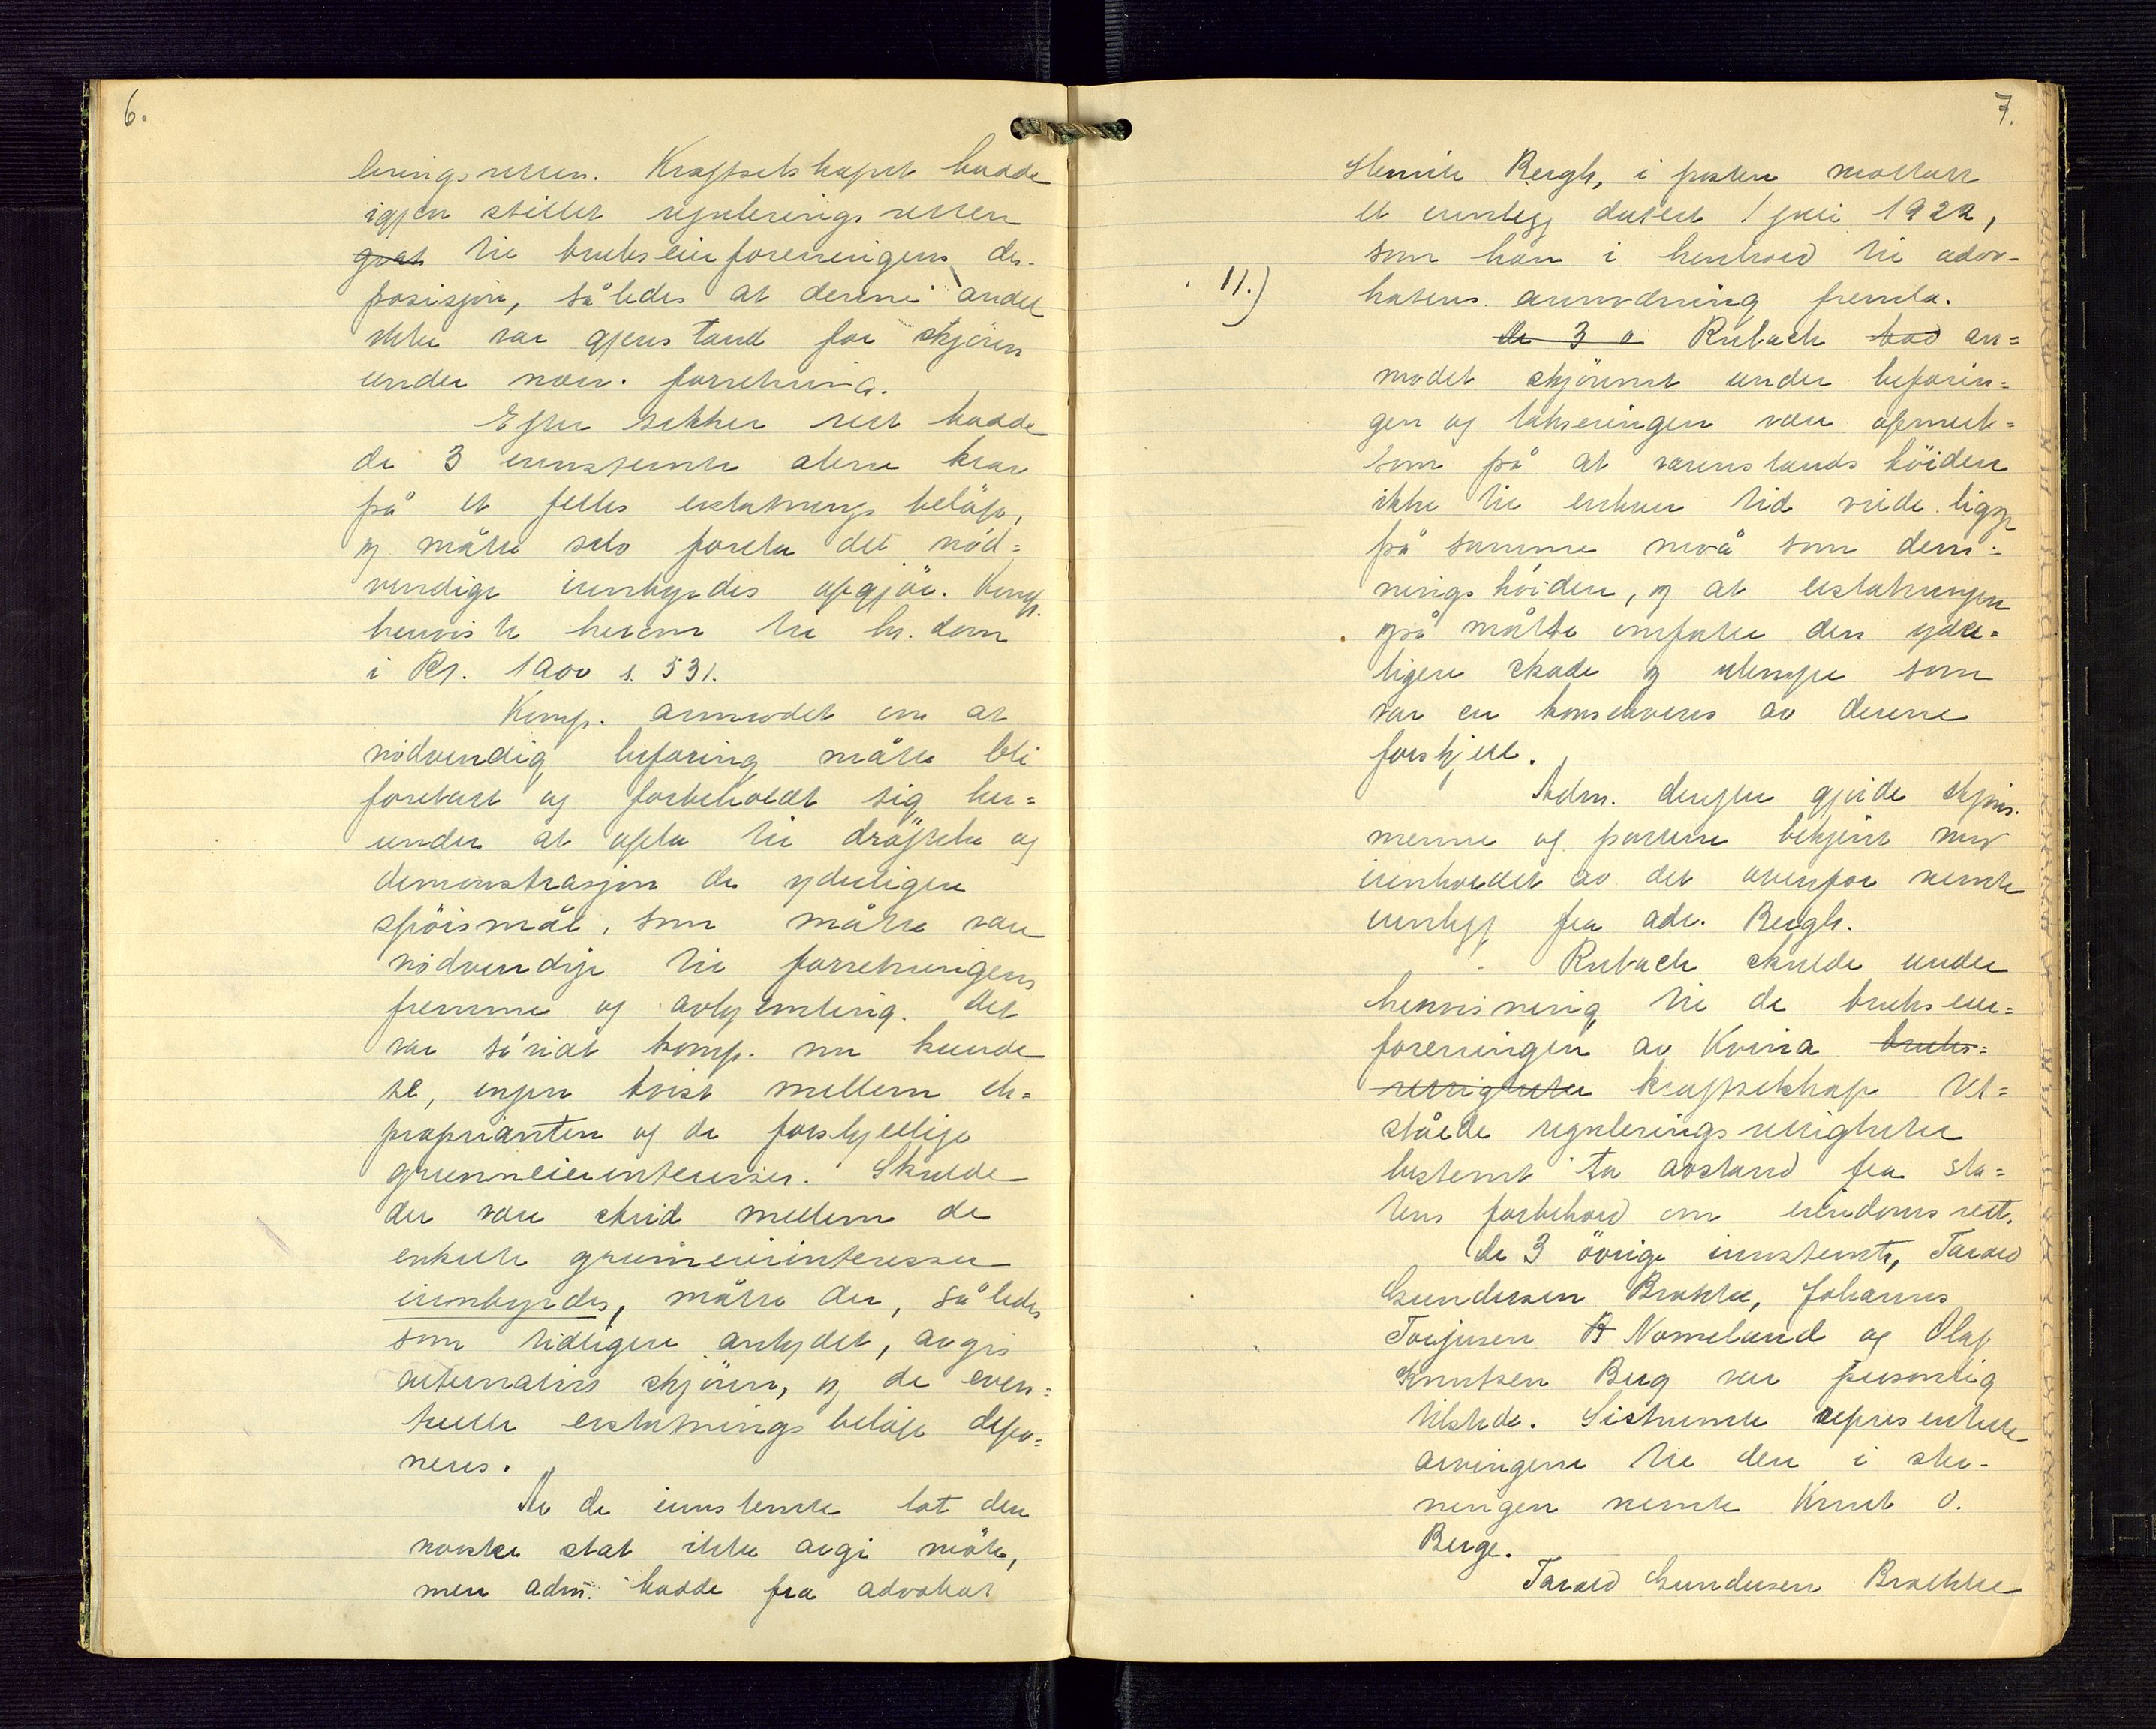 6.
leringsretten. Kraftselskapet hadde
igjen stillet reguleringsretten
grat til brukseierforeningens dis-
posisjon, således at denne andel
ikke var gjenstand for skjönn
under nærv. forretning.
Efter sikker rett hadde
de 3 innstevnte alene krav
på et felles erstatnings belöp,
og måtte selv foreta det nöd=
vendige innbyrdes opgjör. Komp.
henviste herom til hr. dom
i Rt. 1900 s. 531.
Komp. anmodet om at
nödvendig befaring måtte bli
foretatt og forbeholdt sig her=
under at opta til dröftelse og
demonstrasjon de yderligere
spörsmål, som måtte være
nödvendige til forretningens
fremme og avhjemling. Det
var såvidt komp. nu kunde
se, ingen tvist mellem eks=
proprianten og de forskjellige
grunneierinteresser. Skulde
der være strid mellem de
enkelte grunneierinteresser
innbyrdes, måtte der, således
som tidligere antydet, avgis
alternativt skjönn, og de even=
tuelle erstatningsbelöp depo=
neres.
Av de innstevnte lot den
norske stat ikke avgi möte,
men adm. hadde fra advokat
7.
Henrik Bergh, i posten mottatt
et innlegg datert 1 juli 1922,
som han i henhold til advo-
11.) katens anmodning fremla.
de 3 o Rubach bad an=
modet skjönnet under befarin=
gen og takseringen være opmerk=
som på at vannstandshöiden
ikke til enhver tid vilde ligge
på samme nivå som dem=
ningshöiden, og at erstatningen
også måtte omfatte den yder=
ligere skade og ulempe som
var en konsekvens av denne
forskjell.
Adm. derefter gjorde skjöns.
mennene og partene bekjent med
innholdet av det ovenfor nevnte
innlegg fra adv. Bergh.
Rubach skulde under
henvisning til de brukseier=
foreningen av Kvina bruks=
rettigheter kraftselskap til=
ståede reguleringsrettigheter
bestemt ta avstand fra sta=
tens forbehold om eiendomsrett.
De 3 övrige innstevnte, Tarald
Gundersen Brokke, Johannes
Torjusen B Nomeland og Olaf
Knutsen Berg var personlig
tilstede. Sistnevnte representerte
arvingene til den i stev-
ningen nevnte Knut O.
Berge.
Tarald Gundersen Brokke